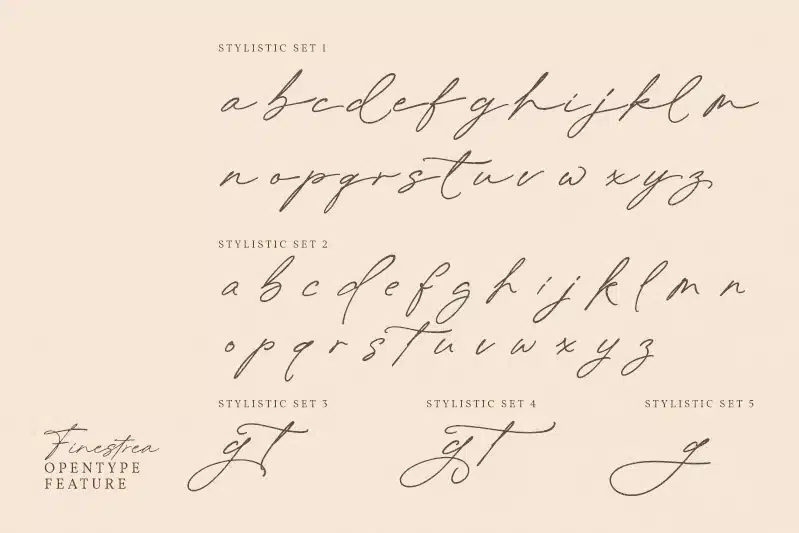 STYLISTIC SET 1
a b c d e f g h i j k l m
n o p q r s t u v w x y z
STYLISTIC SET 2
a b c d e f g h i j k l m n
o p q r s t u v w x y z
STYLISTIC SET 3
g t
STYLISTIC SET 4
g t
STYLISTIC SET 5
g
Finestrea
OPENTYPE
FEATURE